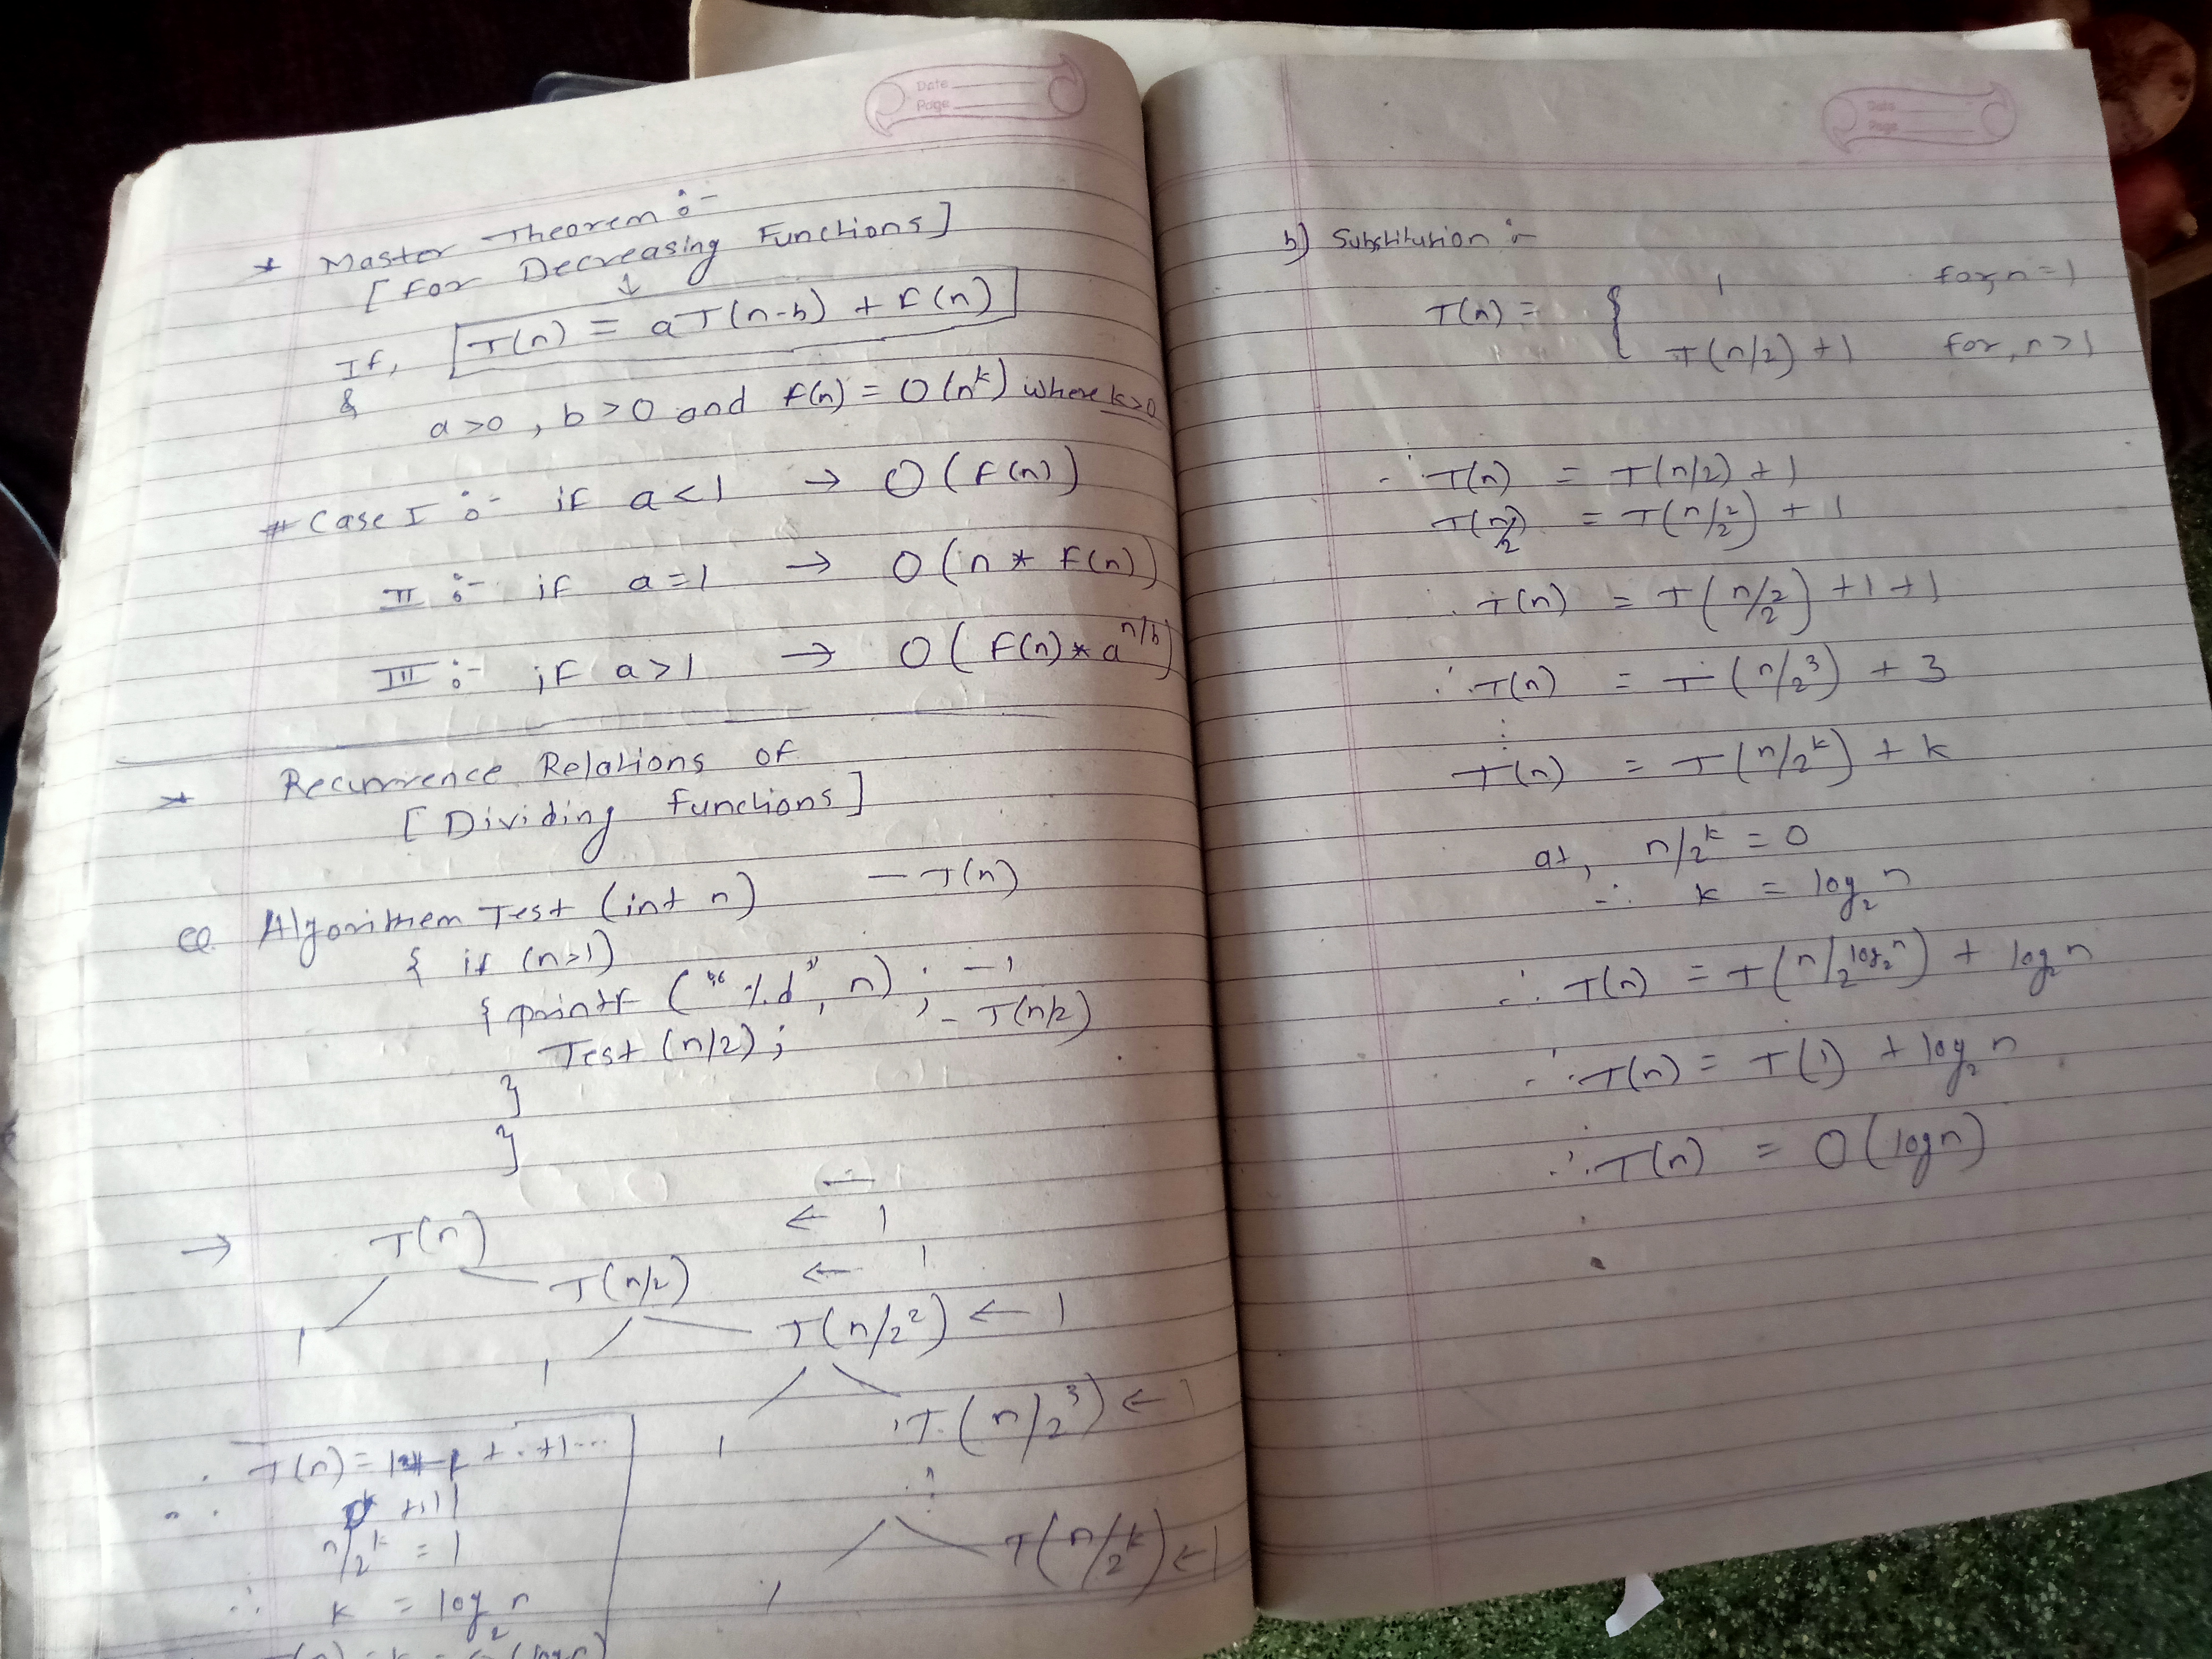 Date
Page
* Master Theorem :-
[For Decreasing Functions]
↓
If, T(n) = aT(n-b) + F(n)
&
a>0, b>0 and f(n) = O(n^k) where k>0
# Case I :- if a<1 → O(F(n))
II :- if a=1 → O(n * F(n))
III :- if a>1 → O(F(n) * a^n/b)
* Recurrence Relations of
[Dividing functions]
Algorithem Test (int n) — T(n)
{ if (n>1)
{ printf ("%d", n); — 1
Test (n/2); — T(n/2)
}
}
→ T(n) ← 1
T(n/2) ← 1
1 T(n/2^2) ← 1
1
1 T(n/2^3) ← 1
⋮
T(n/2^k) ← 1
1
∴ T(n) =
n/2^k = 1
∴ k = log_2 n
Date
Page
b) Substitution :-
T(n) = { 1 for, n=1
T(n/2) + 1 for, n>1
∴ T(n) = T(n/2) + 1
T(n/2) = T(n/2^2) + 1
∴ T(n) = T(n/2^2) + 1 + 1
∴ T(n) = T(n/2^3) + 3
⋮
T(n) = T(n/2^k) + k
at, n/2^k = 0
∴ k = log_2 n
∴ T(n) = T(n/2^log_2 n) + log_2 n
∴ T(n) = T(1) + log_2 n
∴ T(n) = O(log n)